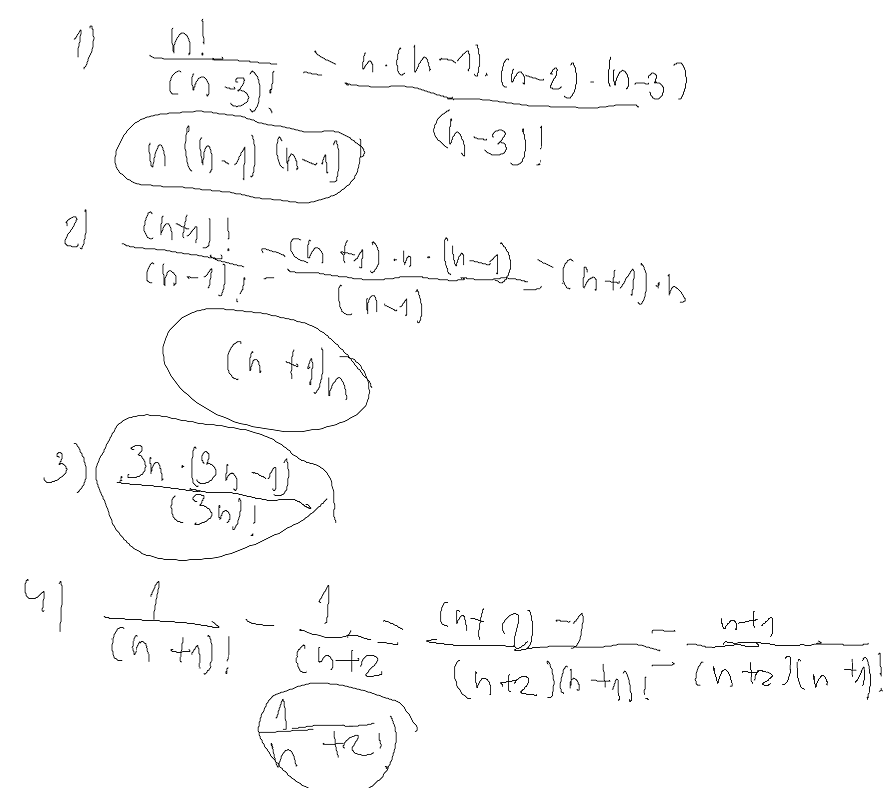 1) n!/(n-3)! = n·(n-1)·(n-2)·(n-3)/(n-3)!
n(n-1)(n-1)
2) (n+1)!/(n-1)! = (n+1)·n·(n-1)/(n-1) = (n+1)·n
(n+1)n
3) 3n·(3n-1)/(3n)!
4) 1/(n+1)! - 1/(n+2 = (n+2)-1/(n+2)(n+1)! = n+1/(n+2)(n+1)!
1/n+2!